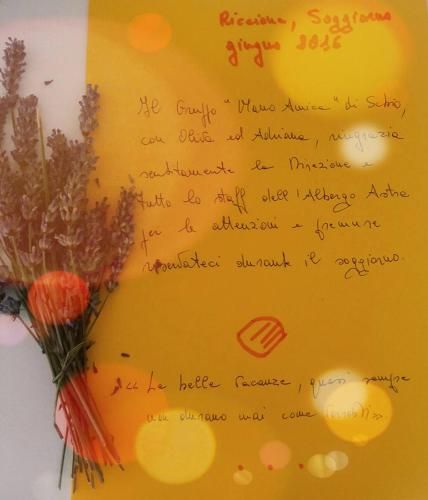 Riccione, Soggiorno
giugno 2016
Il Gruppo "Mano Amica" di Schio,
con Oliva ed Adriana, ringrazia
sentitamente la Direzione e
tutto lo staff dell'Albergo Astra
per le attenzioni e premure
riservateci durante il soggiorno.
"Le belle vacanze, quasi sempre
non durano mai come